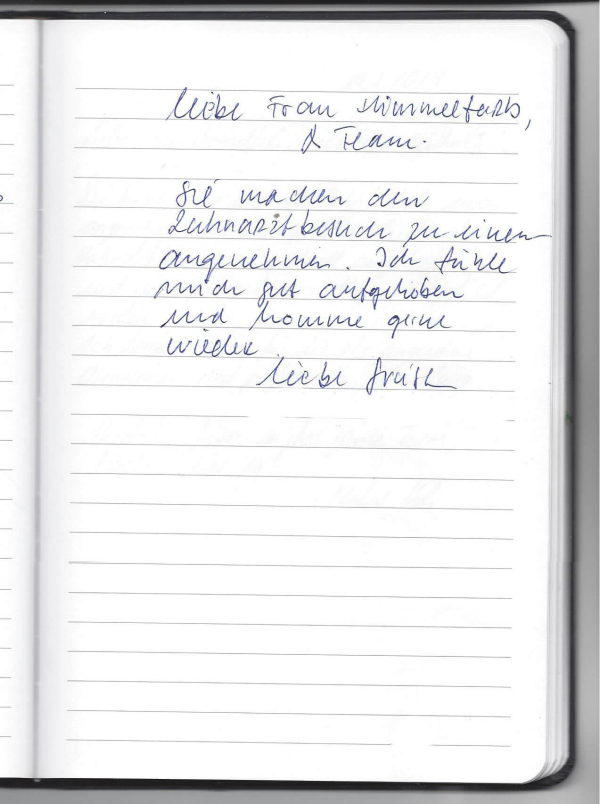 Liebe Frau Himmelfarb,
& Team.
Sie machen den
Zahnarztbesuch zu einem
angenehmen. Ich fühle
mich gut aufgehoben
und komme gerne
wieder.
Liebe Grüße